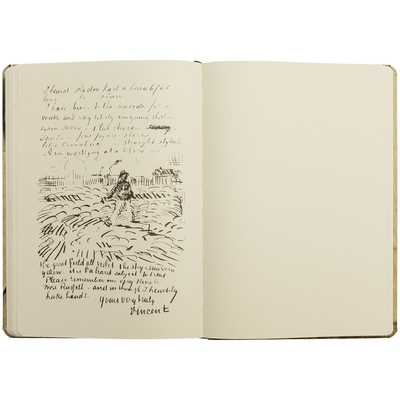 I heard Rodin had a beautiful
head at the Salon
I have been to the seaside for a
week and very likely am going thither
again soon. - Flat shore
sands - fine figures there
like Cimabue - straight stylish
Am working at a Sower
the great field all violet the sky & sun very
yellow. it is a hard subject to treat
Please remember me very kindly to
Mrs Russell - and in thought I heartily
shake hands.
Yours very truly
Vincent